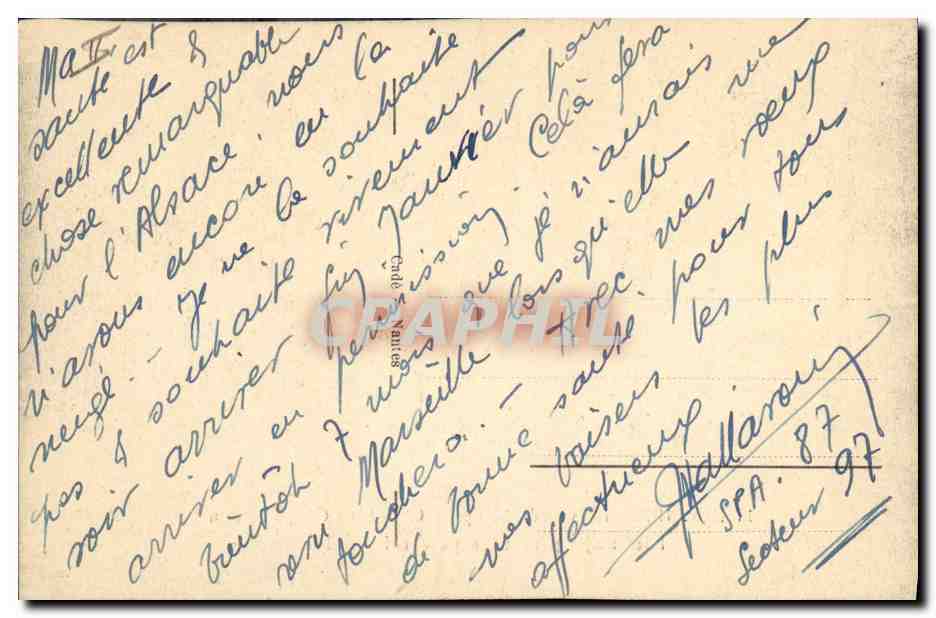 II
Ma
santé est
excellente &
chose remarquable
pour l'Alsace, nous
n'avons encore eu la
neige - Je ne le souhaite
pas & souhaite vivement
voir arriver fin Janvier pour
arriver en permission, Celà fera
bientôt 7 mois que je n'aurais
vu Marseille lorsqu'elle me
touchera. - Avec mes voeux
de bonne santé pour tous
mes baisers les plus
affectueux
SPA. 87
Secteur 97
Cadé Nantes
CRAPHIL